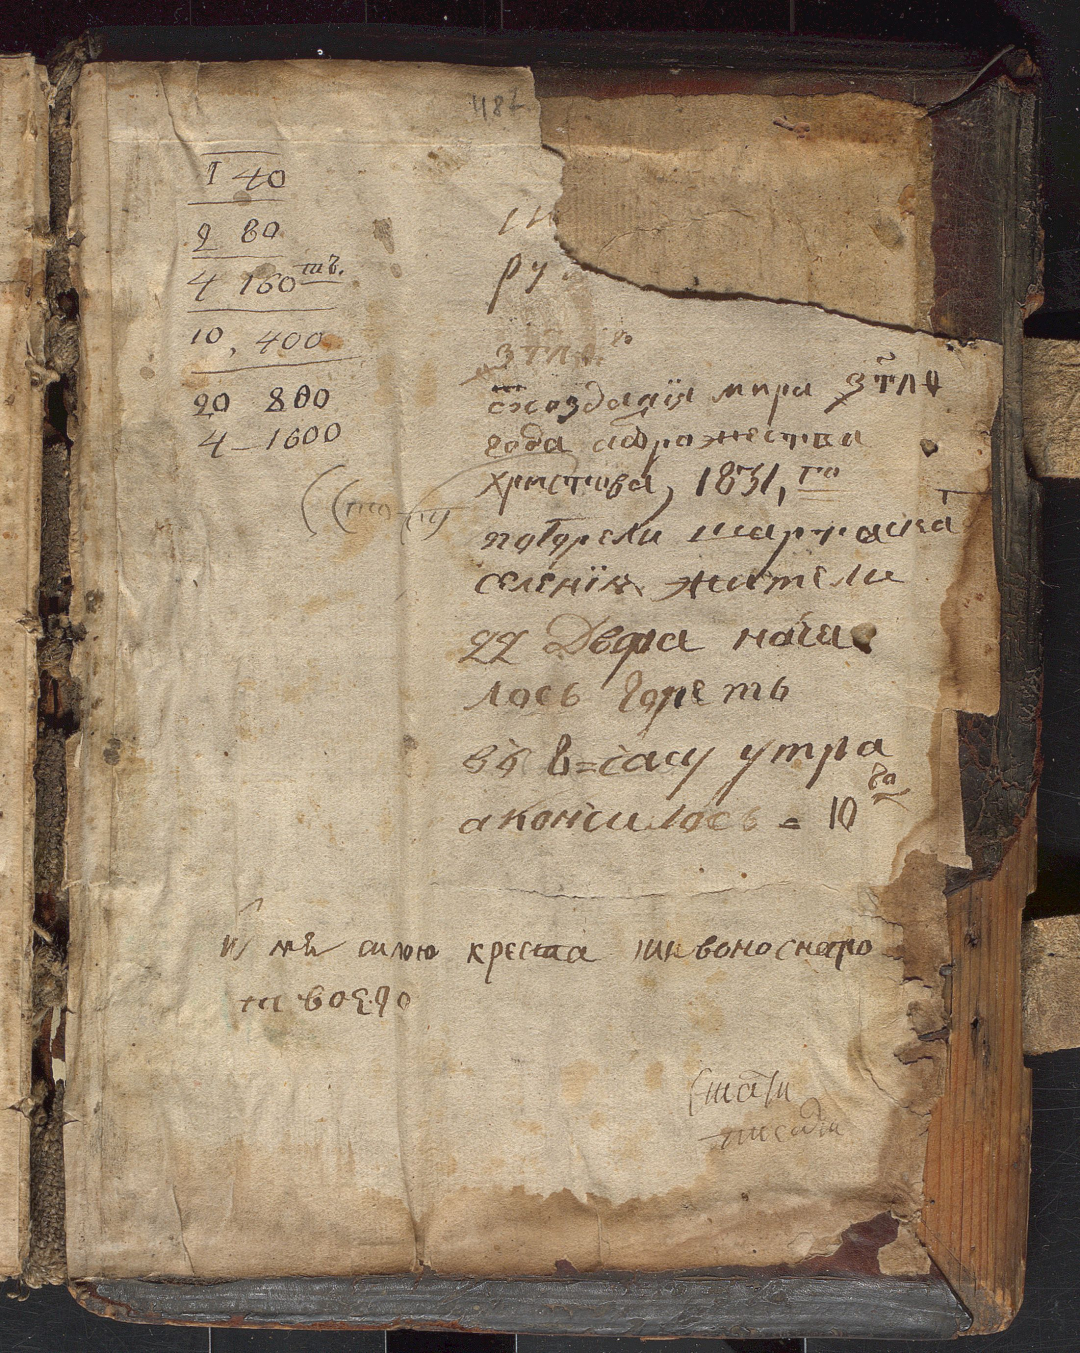 1 40
2 80
4 160 тъ.
10, 400
20 800
4 – 1600
ру
зтлѳ го
создания мира зтлѳ
года а от рожества
христова, 1831, го
погорели шарташка
селения жители
22 двора нача
лось гореть
въ в = часу утра
а кончилось = 10 го
силою креста живоноснаго
твоего